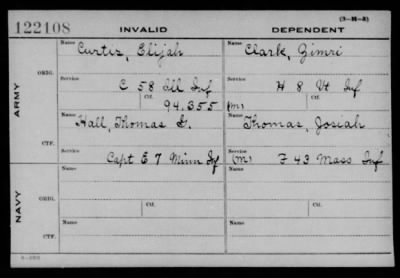 122108
INVALID
DEPENDENT
(3-M-8)
ARMY
ORIG.
Name
Curtis, Elijah
Name
Clark, Zimri
Service
C 58 Ill Inf
Service
H 8 Vt Inf
Ctf.
94.355
Ctf.
(m)
CTF.
Name
Hall, Thomas G.
Name
Thomas, Josiah
Service
Capt E 7 Minn Inf
Service
(m) F 43 Mass Inf
NAVY
ORIG.
Name
Name
Ctf.
Ctf.
CTF.
Name
Name